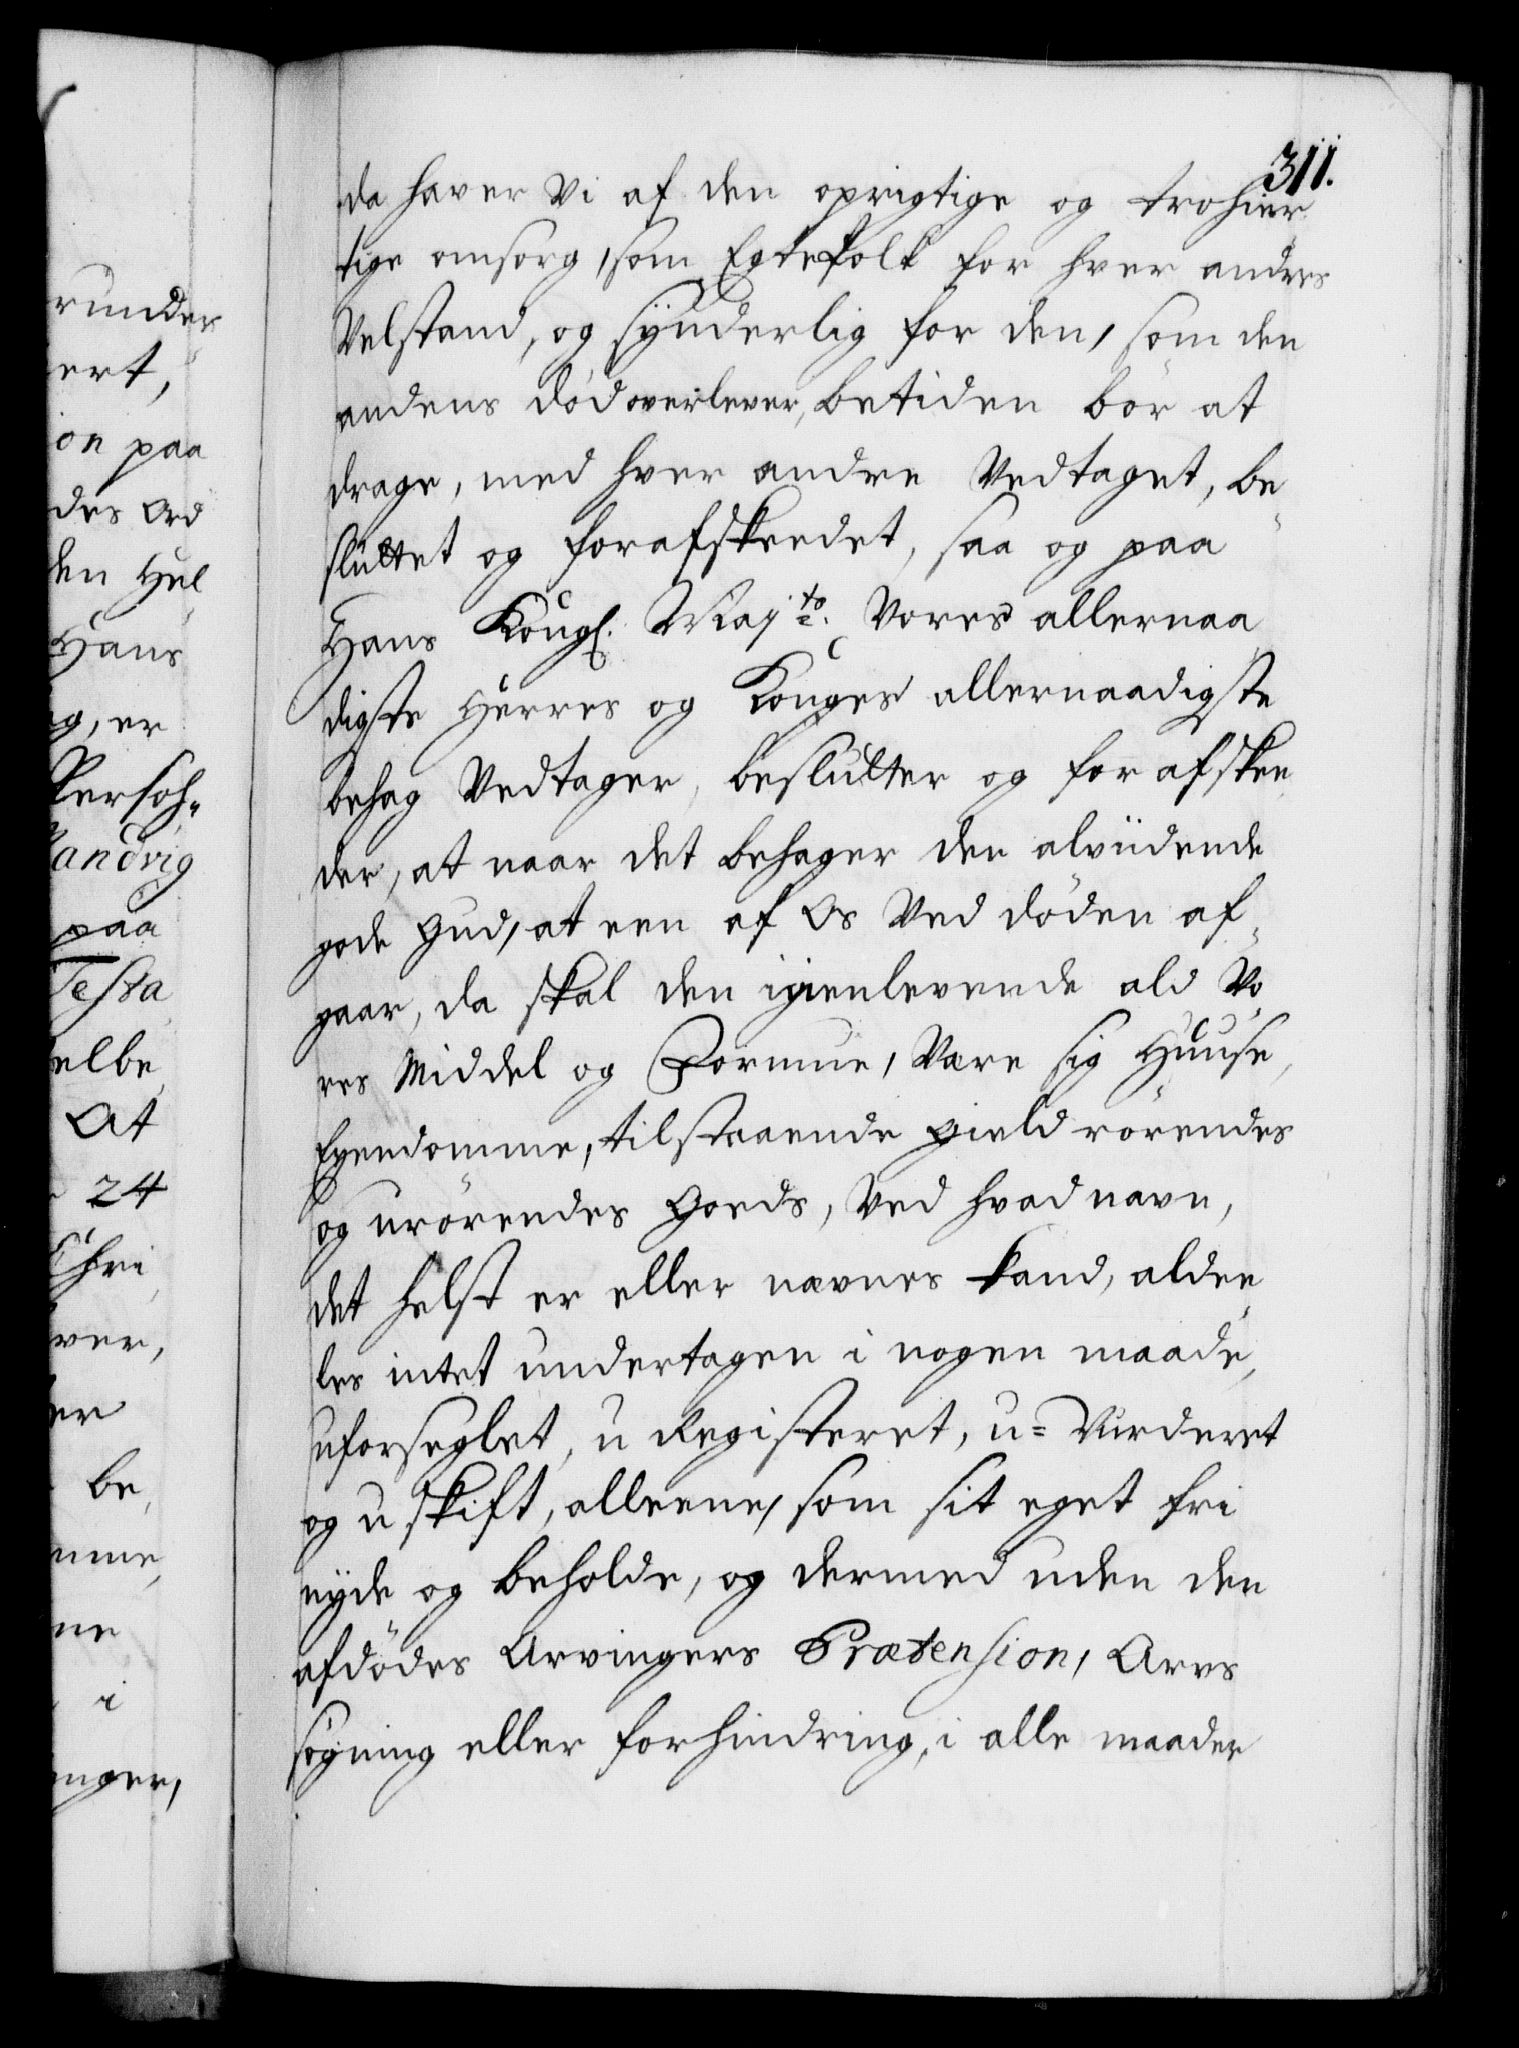 311.
da haver Vi af den oprigtige og trohier
tige omsorg, som Egtefolk for hver andres
Velstand, og synderlig for den, som den
andens død overlever, betiden bör at
drage, med hver andre Vedtaget, be
sluttet og forafskeedet, saa og paa
Hans Kongl. Majts. Vores allernaa
digste Herres og Konges allernaadigste
behag Vedtager, beslutter og forafskee
der, at naar det behager den alviidende
gode Gud, at een af Os Ved döden af
gaar, da skal den igienlevende ald Vo
res Middel og Formue, Være sig Huuse,
Eyendomme, tilstaaende gield rörendes
og urörendes Goeds, Ved hvad navn,
det helst er eller nævnes kand, aldee
les intet undertagen i nogen maade,
uforseglet, u Registeret, u= Vurderet
og u skift, alleene, som sit eget fri
nyde og beholde, og dermed uden den
afdödes Arvingers Prætension, Arvs
sögning eller forhindring, i alle maader
runder
ert,
on paa
des Ord
den Hel
Hans
g, er
Persoh=
andvig
paa
Testa
elbe
At
24
Chri
ver,
er
be
mme,
ne
i
nger,